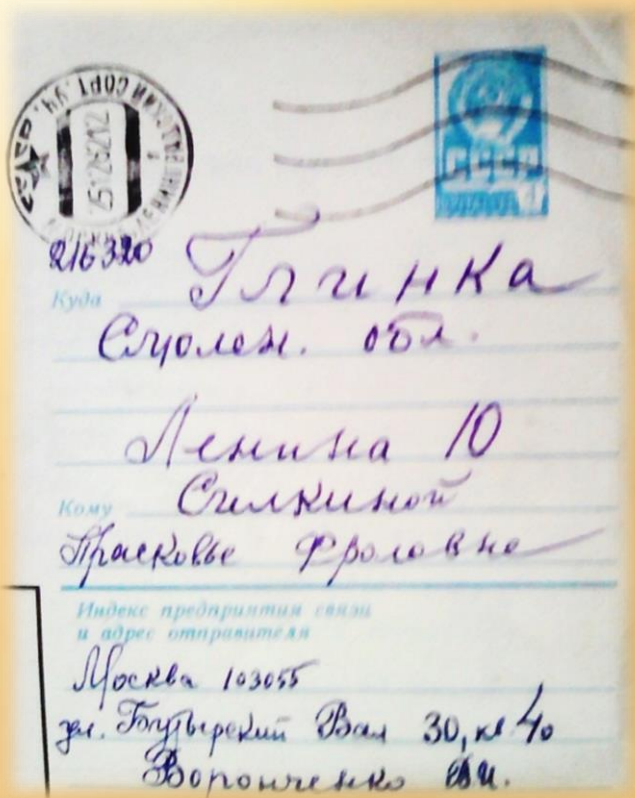 СССР
216320
Куда Глинка
Смолен. обл.
Ленина 10
Кому Силкиной
Прасковье Фроловне
Индекс предприятия связи
и адрес отправителя
Москва 103055
ул. Бутырский Вал 30, кв 40
Воронченко